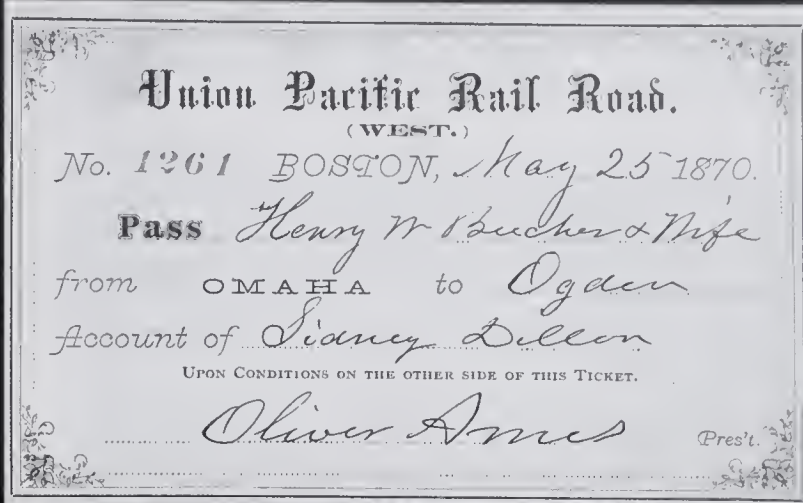 Union Pacific Rail Road.
(WEST.)
No. 1261 BOSTON, May 25 1870.
Pass Henry W Beecher & Wife
from OMAHA to Ogden
Account of Sidney Dillon
UPON CONDITIONS ON THE OTHER SIDE OF THIS TICKET.
Oliver Ames Pres't.